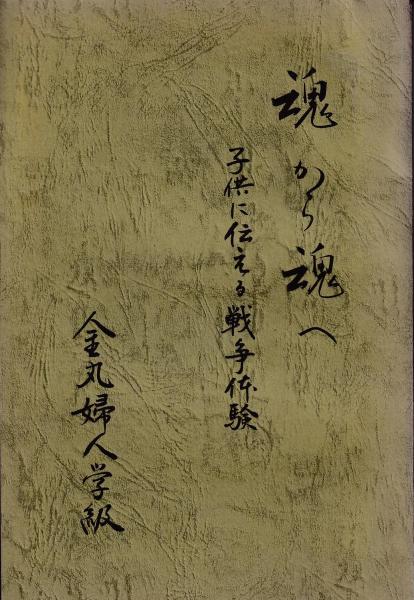 魂から魂へ
子供に伝える戦争体験
金丸婦人学級